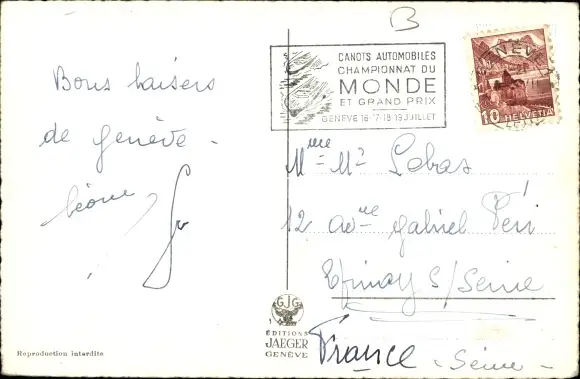 B
CANOTS AUTOMOBILES
CHAMPIONNAT DU
MONDE
ET GRAND PRIX
GENEVE 16-17-18-19 JUILLET
10 HELVETIA
Bons baisers
de Genève -
Léone
Mme - Mr Lebas
12 Avnue Gabriel Péri
Epinay S/Seine
France - Seine -
GJG
EDITIONS
JAEGER
GENÈVE
Reproduction interdite